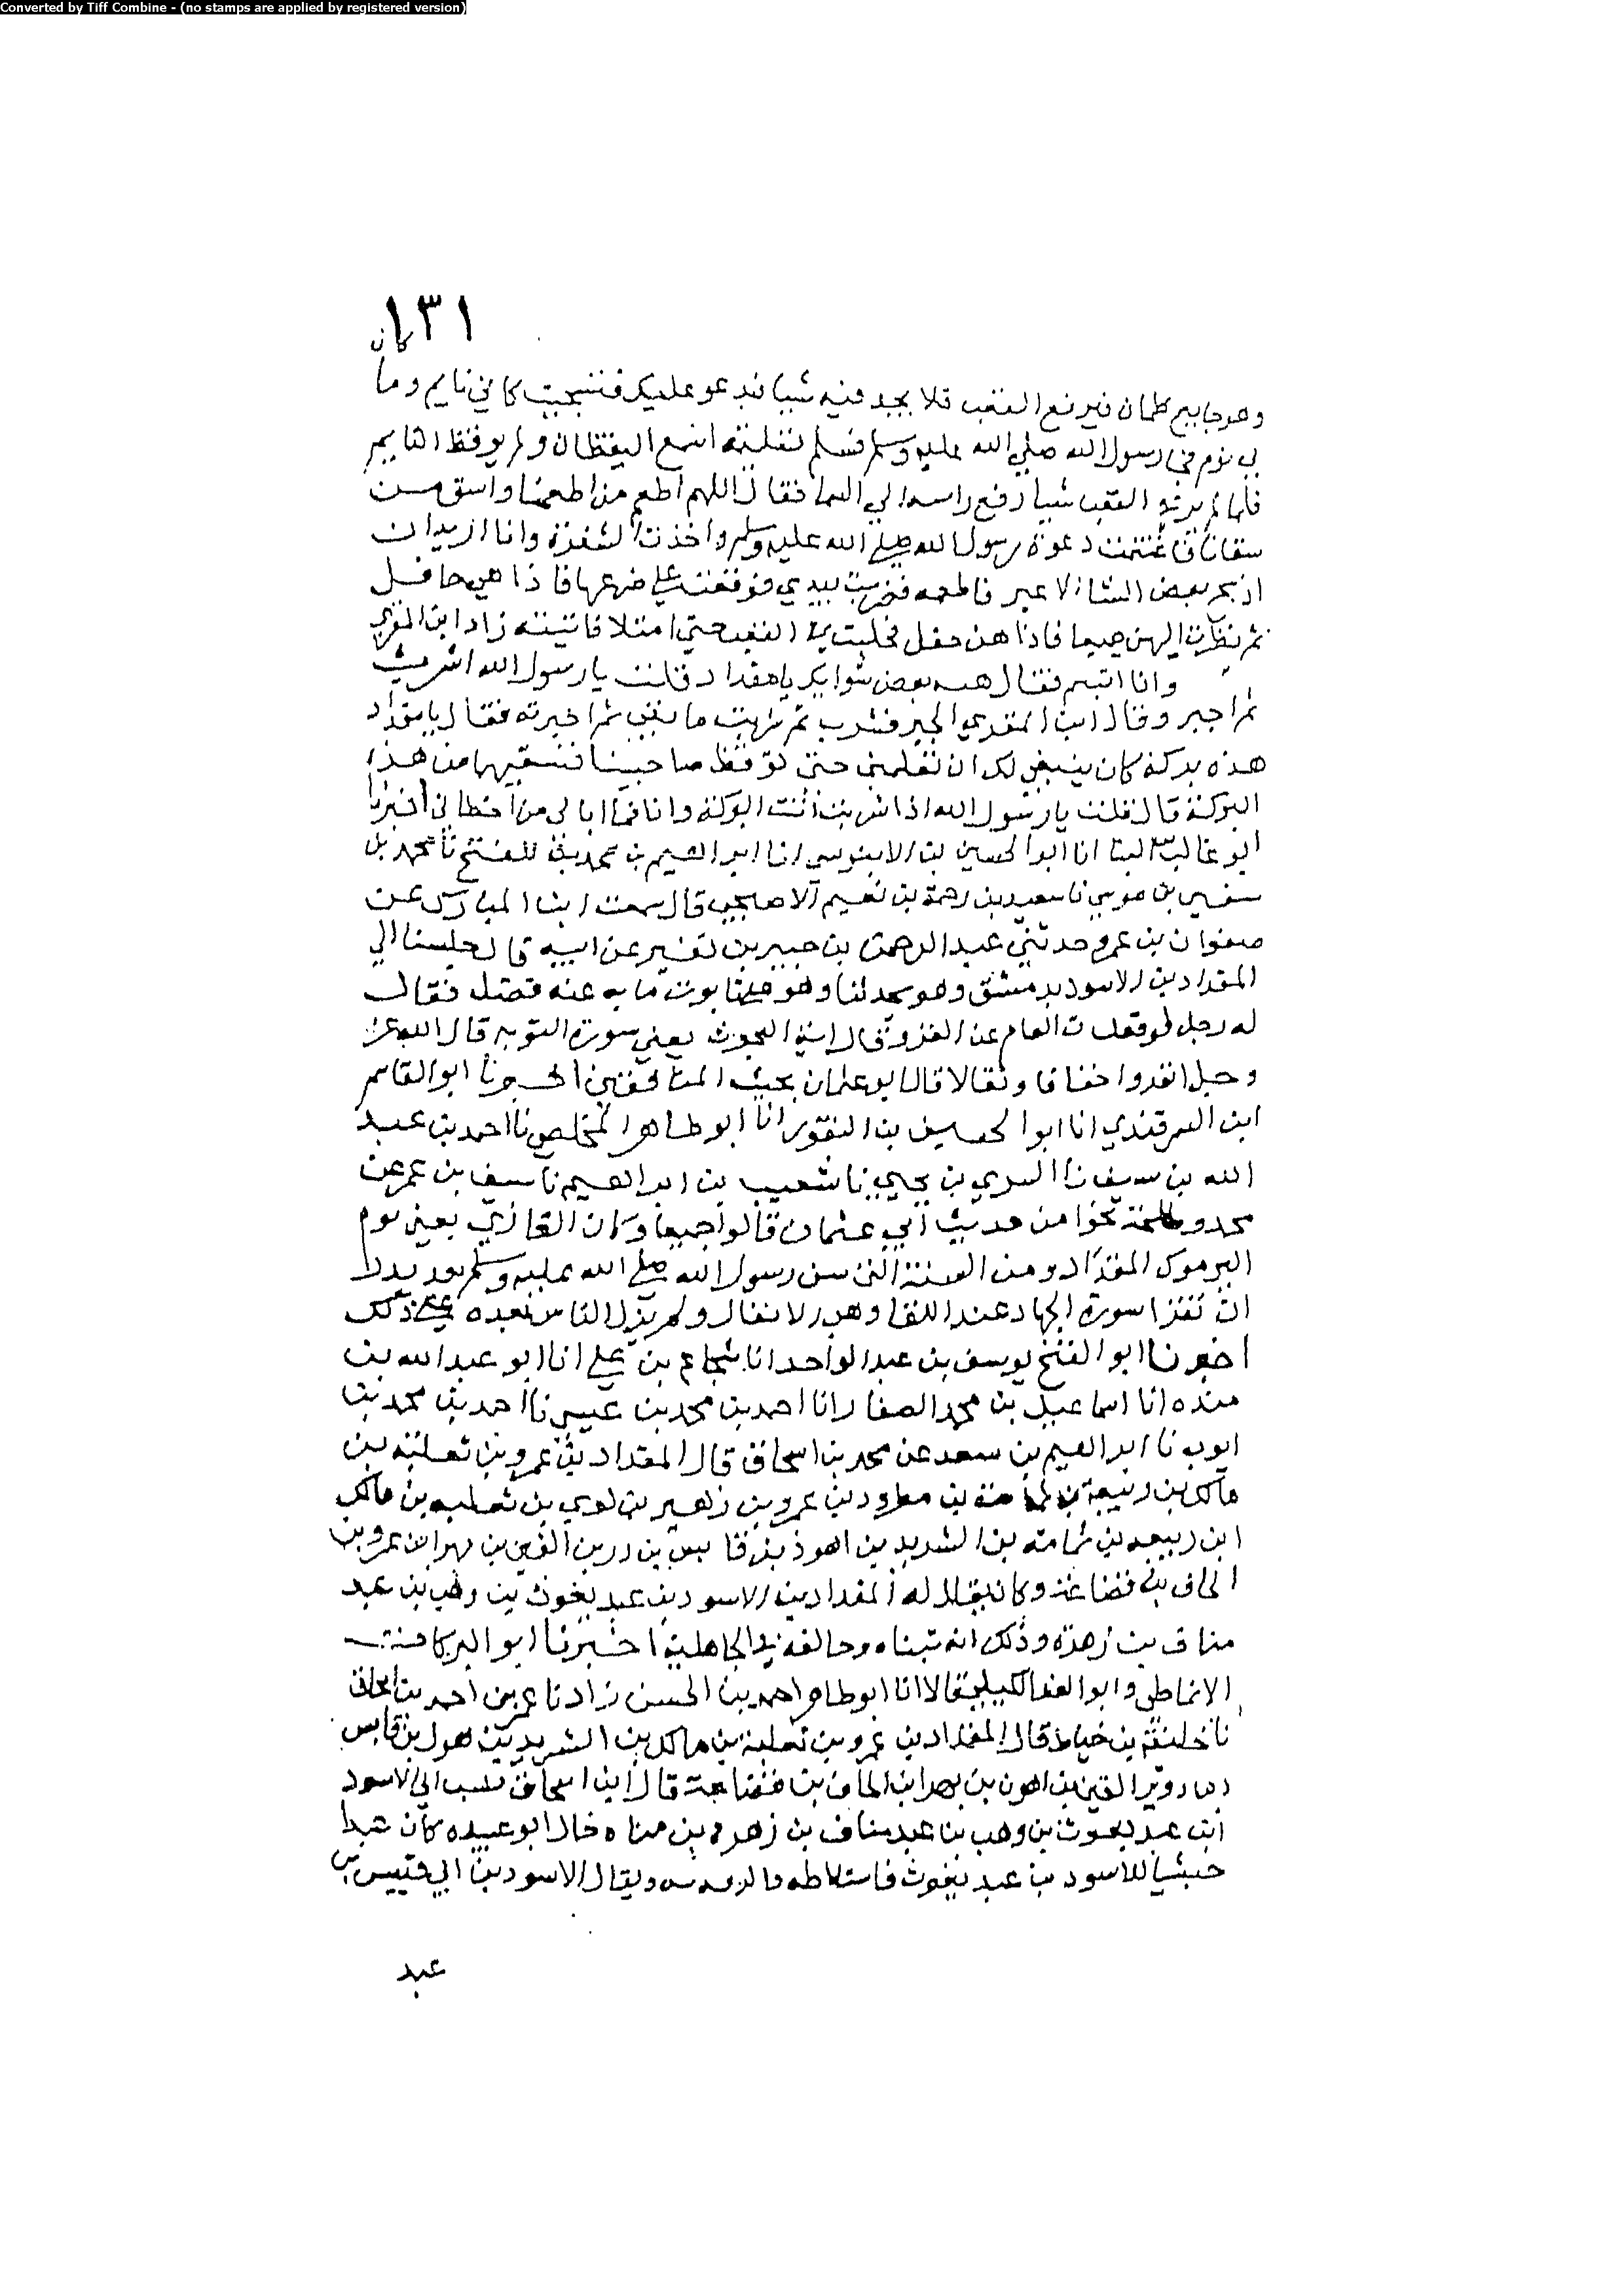 Converted by Tiff Combine - (no stamps are applied by registered version)
١٣١
كان
وهو جايع ظمان فيرفع القعب فلا يجد فيه شيا فيدعو عليك فتسجيت كاني نايم وما
بي نوم فجا رسول الله صلى الله عليه وسلم فسلم تسليمة اسمع اليقظان ولم يوقظ النايم
فلما لم ير في القعب شيا رفع راسه الي السما فقال اللهم اطعم من اطعمنا واسق من
سقانا فاغتنمت دعوة رسول الله صلى الله عليه وسلم واخذت الشفرة وانا اريد ان
اذبح بعض الشا فضربت بيدي فوقعت علي ضرعها فاذا هي حافل
ثم نظرت اليهن جميعا فاذا هن حفل فحلبت في القعب حتي امتلا فاتيته زاد ابن المقري
وانا اتبسم فقال هيه بعض سوايك يا مقداد فقلت يا رسول الله اشرب
ثم اخبر وقال ابن المقري الخبر فشرب ثم شربت ما بقي ثم اخبرته فقال يا مقداد
هذه بركة كان ينبغي لك ان تعلمني حتي نوقظ صاحبينا فنسقيهما من هذه
البركة قال فقلت يا رسول الله اذا شربت انت البركة وانا فما ابالي من اخطات اخبرنا
ابو غالب بن البنا انا ابو الحسين بن الابنوسي انا ابراهيم بن محمد بن الفتح نا محمد بن
سفين بن موسي نا سعيد بن رحمة بن نعيم الاصبحي قال سمعت ابن المبارك عن
صفوان بن عمرو حدثني عبد الرحمن بن جبير بن نفير عن ابيه قال جلسنا الي
المقداد بن الاسود بدمشق وهو يحدثنا وهو علي تابوت ما به عنه فضل فقال
له رجل لو قعدت العام عن الغزو قال ابت البحوث يعني سورة التوبه قال الله عز
وجل انفروا خفافا وثقالا قال ابو عثمان بحثت المنافقين اخبرنا ابو القاسم
ابن السمرقندي انا ابو الحسين بن النقور انا ابو طاهر المخلص نا احمد بن عبد
الله بن سيف نا السري بن يحيي نا شعيب بن ابراهيم نا سيف بن عمر عن
محمد وطلحة نحوا من حديث ابي عثمان قالوا جميعا وكان القاري يعني يوم
اليرموك المقداد ومن السنة التي سن رسول الله صلى الله عليه وسلم بعد بدر
ان تقرا سورة الجهاد عند اللقا وهي الانفال ولم يزل الناس بعده علي ذلك
اخبرنا ابو الفتح يوسف بن عبد الواحد انا شجاع بن علي انا ابو عبد الله بن
منده انا اسماعيل بن محمد الصفار انا احمد بن محمد بن عيسي نا احمد بن محمد بن
ايوب نا ابراهيم بن سعد عن محمد بن اسحاق قال المقداد بن عمرو بن ثعلبة بن
مالك بن ربيعة بن ثمامة بن مطرود بن عمرو بن زهير بن لوي بن ثعلبه بن مالك
ابن ربيعه بن ثمامه بن الشريد بن اهوذ بن قايس بن دريم بن القين بن بهرا بن عمرو بن
الحاف بن قضاعة وكان يقال له المقداد بن الاسود بن عبد يغوث بن وهب بن عبد
مناف بن زهرة وذلك انه تبناه وحالفه في الجاهلية اخبرنا ابو البركات
الانماطي وابو العز الكيلي قالا انا ابو طاهر احمد بن الحسن زاد نا عمر بن احمد بن اسحاق
نا خليفة بن خياط قال المقداد بن عمرو بن ثعلبة بن مالك بن الشريد بن هول بن قايس
القين بن اهون بن بهرا بن الحاف بن قضاعة قال ابن اسحاق نسب الي الاسود
ابن عبد يغوث بن وهب بن عبد مناف بن زهرة وقال ابو عبيده كان عبدا
حبشيا للاسود بن عبد يغوث فاستلاطه ويقال الاسود بن ابي قيس بن
عبد